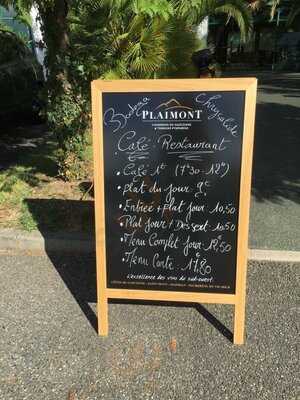 Bodega Chrysalide
PLAIMONT
Café Restaurant
• Café 1€ (7h30 - 12h)
• plat du jour 9€
• Entrée + plat jour 10,50
• Plat jour / Dessert 10,50
• Menu Complet jour 12,50
• Menu Carte : 17,80
L'excellence des vins du sud-ouest.